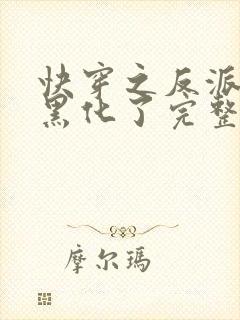 快穿之反派
黑化了完整
摩尔玛